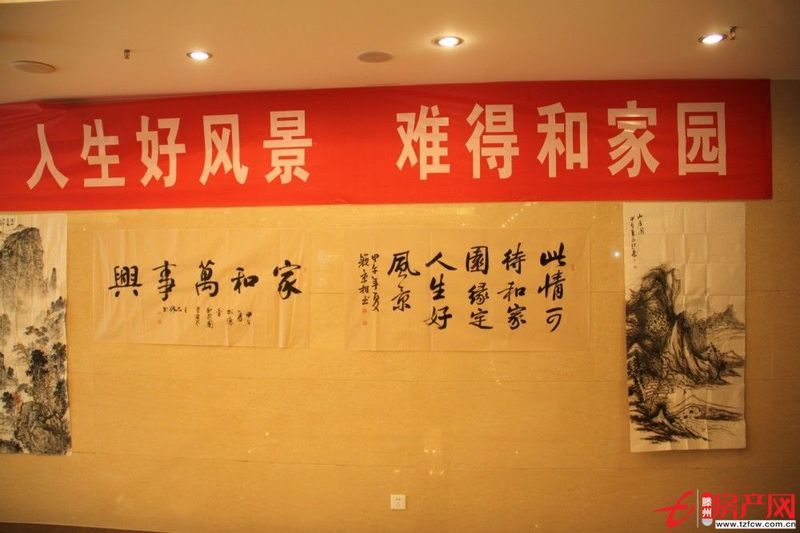 人生好风景 难得和家园
家和萬事興
此情可
待和家
園緣定
人生好
風景
甲午年夏
滕州
房产网
www.tzfcw.com.cn